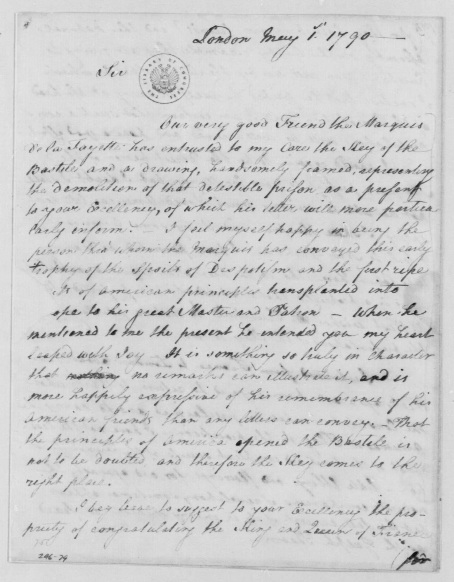 London May 1st 1790 —
Sir
THE LIBRARY OF CONGRESS
Our very good Friend the Marquis
de la Fayette has entrusted to my Care the Key of the
Bastile and a drawing, handsomely framed, representing
the demolition of that detestible prison as a present
to your Excellency, of which his letter will more particu
larly inform. I feel myself happy in being the
person thro' whom the Marquis has conveyed this early
trophy of the Spoils of Despotism and the first ripe
its of american principles transplanted into
ope to his great Master and Patron — When he
mentioned to me the present he intended you my heart
leaped with Joy — It is something so truly in character
that no remarks can illustrate it, and is
more happily expressive of his remembrance of his
american friends than any letters can convey. — That
the principles of america opened the Bastile is
not to be doubted, and therefore the Key comes to the
right place.
I beg leave to suggest to your Excellency the pro-
priety of congratulating the King and Queen of France
for
246-74